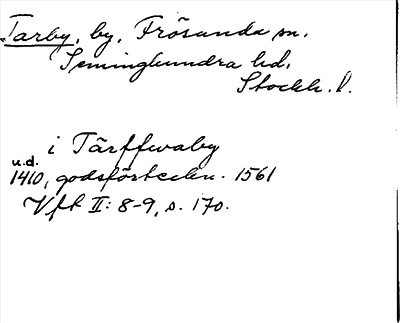 Tarby, by, Frösunda sn.
Seminghundra hd.
Stockh. l.
i Tärffwaby
u.d.
1410, godsförteckn. 1561
Vft II: 8-9, s. 170.